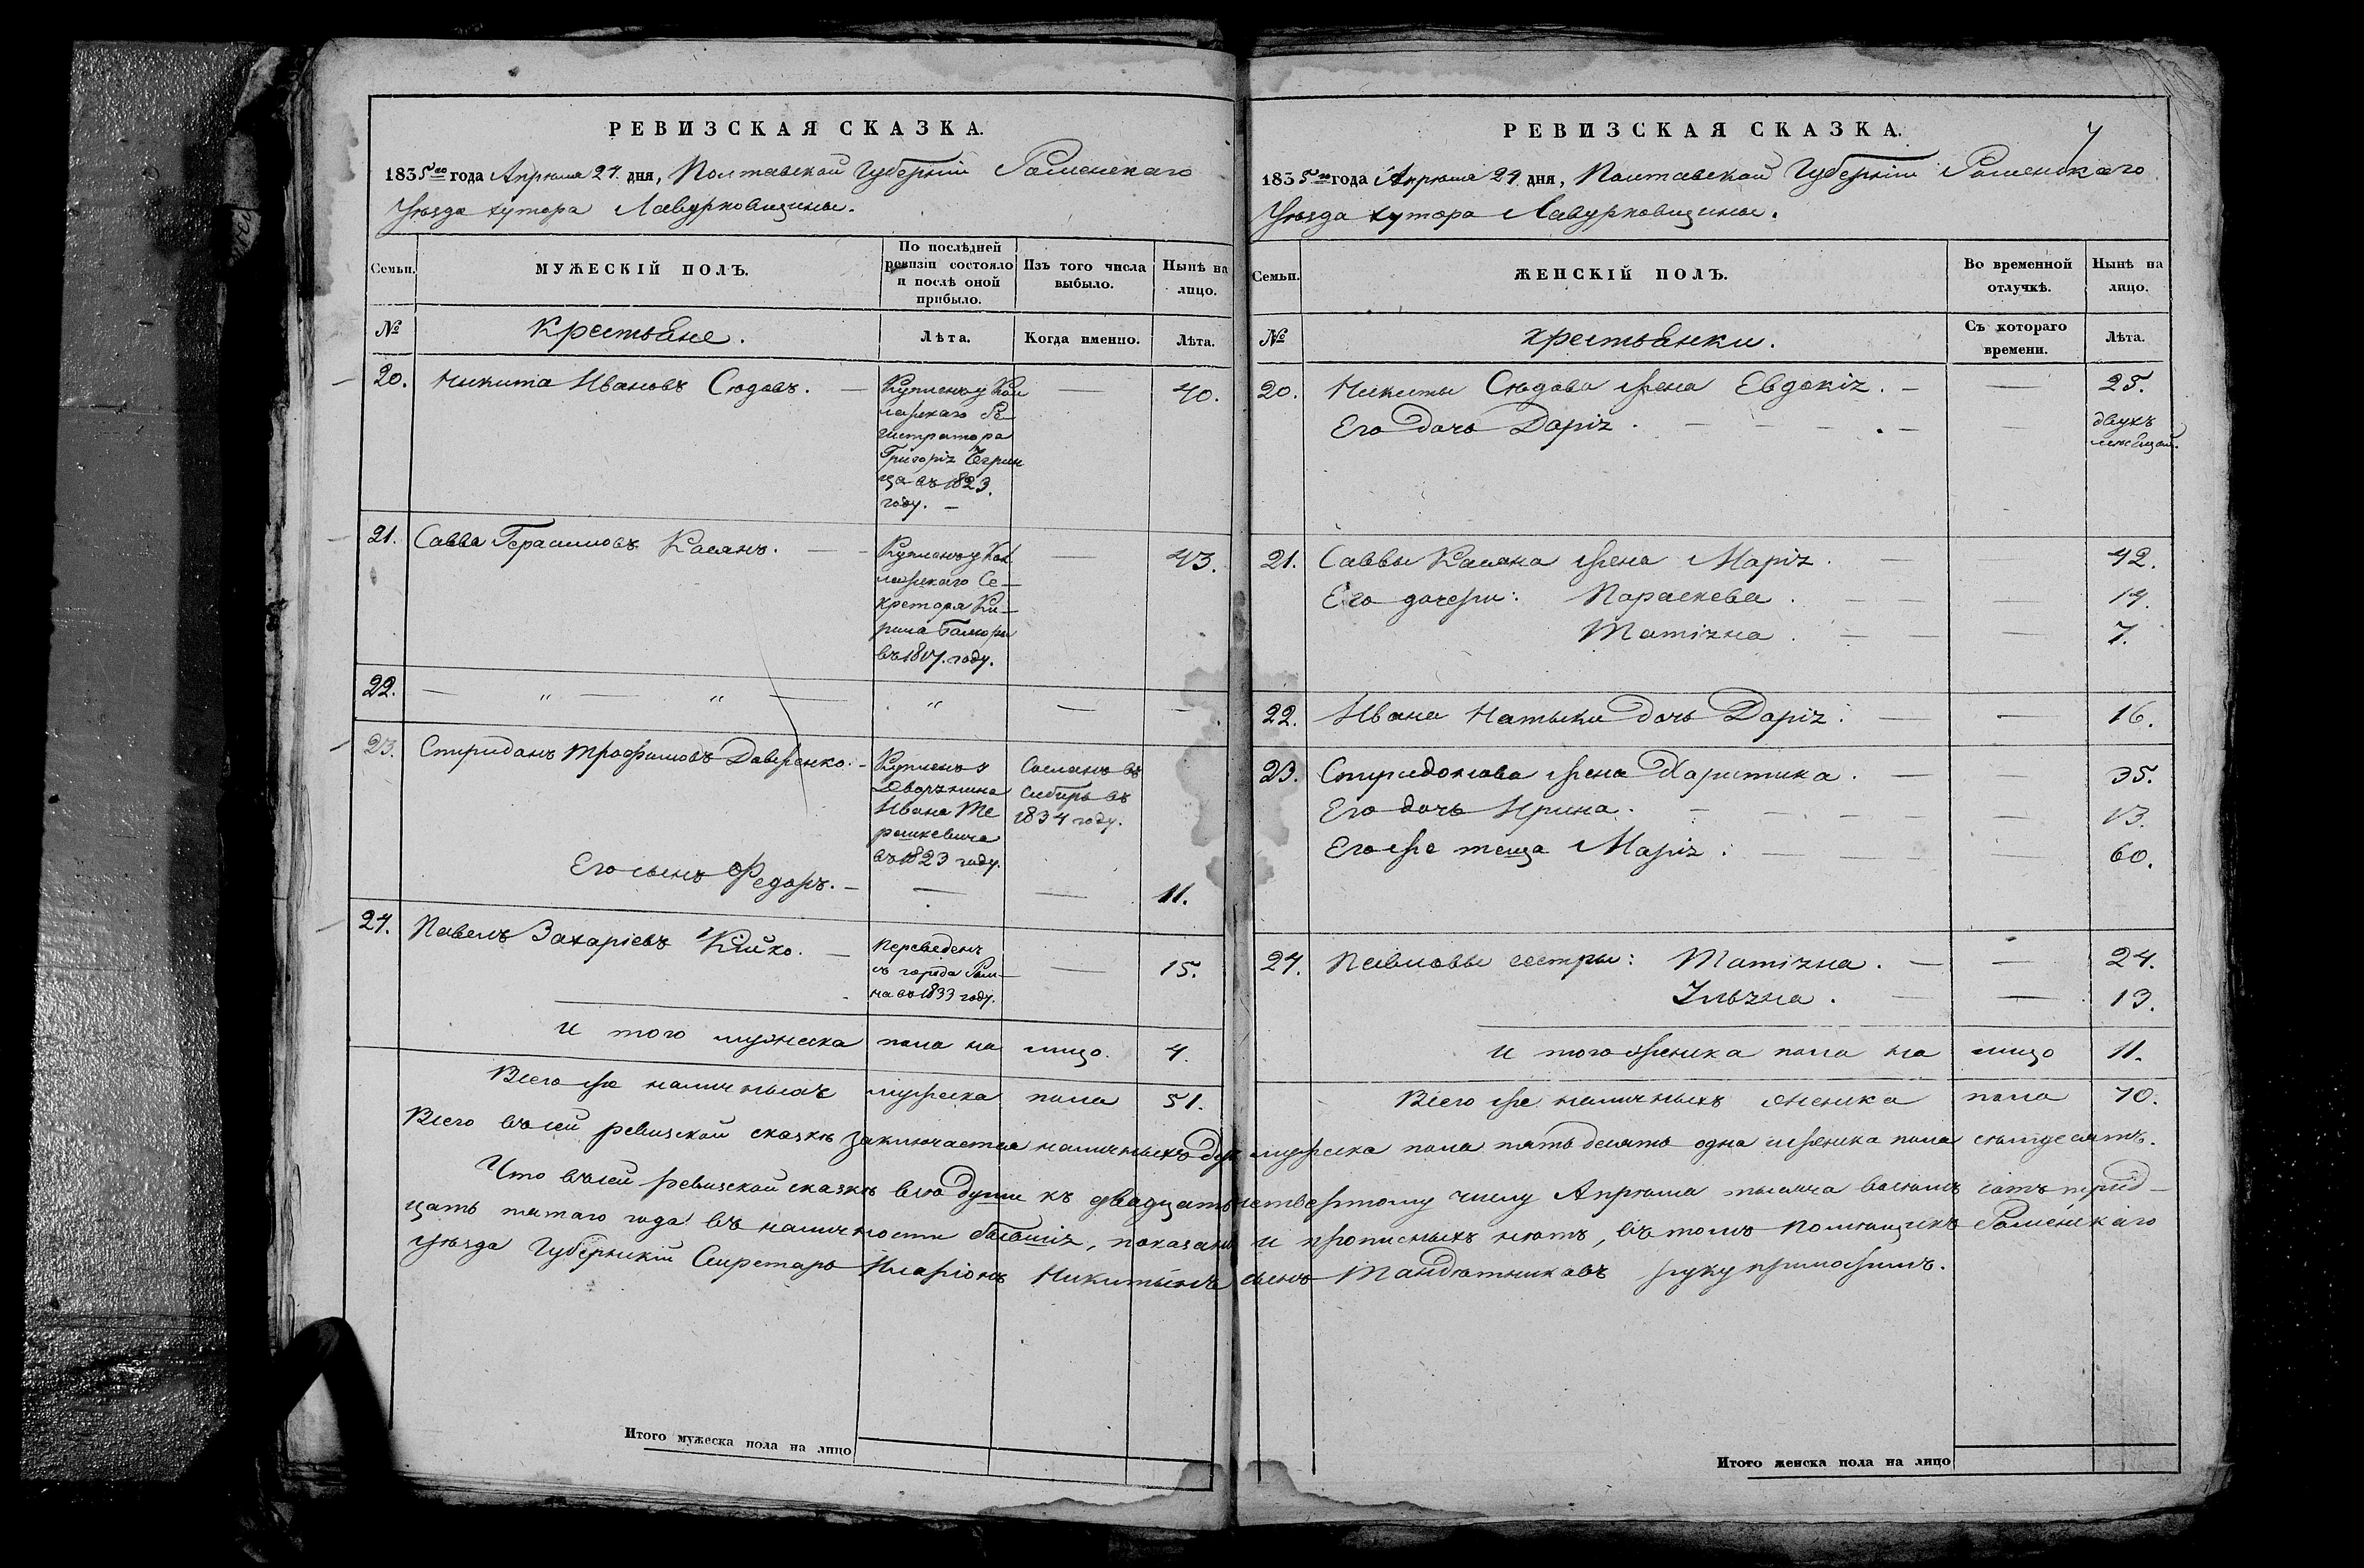 РЕВИЗСКАЯ СКАЗКА.
1835го года Апрѣля 24. дня, Полтавской Губерніи Роменскаго
Уѣзда хутора Лавурковщины.
Семьи.
МУЖЕСКІЙ ПОЛЪ.
По послѣдней ревизіи состояло и послѣ оной прибыло.
Изъ того числа выбыло.
Нынѣ на лицо.
№
Крестьяне.
Лѣта.
Когда именно.
Лѣта.
20. Никита Ивановъ Сюдовъ. — 40.
Купленъ у Кол
лежскаго Ре
гистратора
Григорія
ца въ 1823.
году. —
21. Савва Герасимовъ Касянъ. — 43.
Купленъ у Кол
лежскаго Се
кретаря Ки
рила
въ 1807. году.
22. — „ — „ — „ — —
23. Спиридонъ Трофимовъ Довженко. —
Купленъ у
Дворянина
Ивана Те
рашкевича
въ 1823 году.
Сосланъ въ
Сибирь въ
1834 году.
Его сынъ Федоръ. — — — 11.
24. Павелъ Захаріевъ Кійко. — 15.
Переведенъ
съ города Ром
на въ 1833 году.
И того мужеска пола на лицо. 4.
Всего же наличныхъ мужеска пола 51.
Итого мужеска пола на лицо
РЕВИЗСКАЯ СКАЗКА.
7
1835го года Апрѣля 24 дня, Полтавской Губерніи Роменскаго
Уѣзда хутора Лавурковщины.
Семьи.
ЖЕНСКІЙ ПОЛЪ.
Во временной отлучкѣ.
Нынѣ на лицо.
№
Крестьянки.
Съ котораго времени.
Лѣта.
20. Никиты Сюдова жена Евдокія. — — 25.
Его дочь Дарія. — двухъ
мѣсяцовъ.
21. Саввы Касяна жена Марія. — — 42.
Его дочери: Параскева. — — 14.
Татіяна. — — 7.
22. Ивана Натыки дочь Дарія. — — 16.
23. Спиридонова жена Харитина. — — 35.
Его дочь Ирина. — — 13.
Его же теща Марія. — — 60.
24. Павловы сестры: Татіяна. — — 24.
Ульяна. — — 13.
И того женска пола на лицо 11.
Всего же наличныхъ женска пола 70.
Всего въ сей ревизской сказкѣ заключается наличныхъ душъ мужеска пола пятьдесятъ одна и женска пола семьдесятъ.
Что въ сей ревизской сказкѣ всѣ души къ двадцать четвертому числу Апрѣля тысяча восемъ сотъ трид
цать пятаго года въ наличности бывшія, показаны и прописныхъ нѣтъ, въ томъ помѣщикъ Роменскаго
уѣзда Губернскій Секретарь Иларіонъ Никитинъ сынъ Мандютниковъ руку приложилъ.
Итого женска пола на лицо